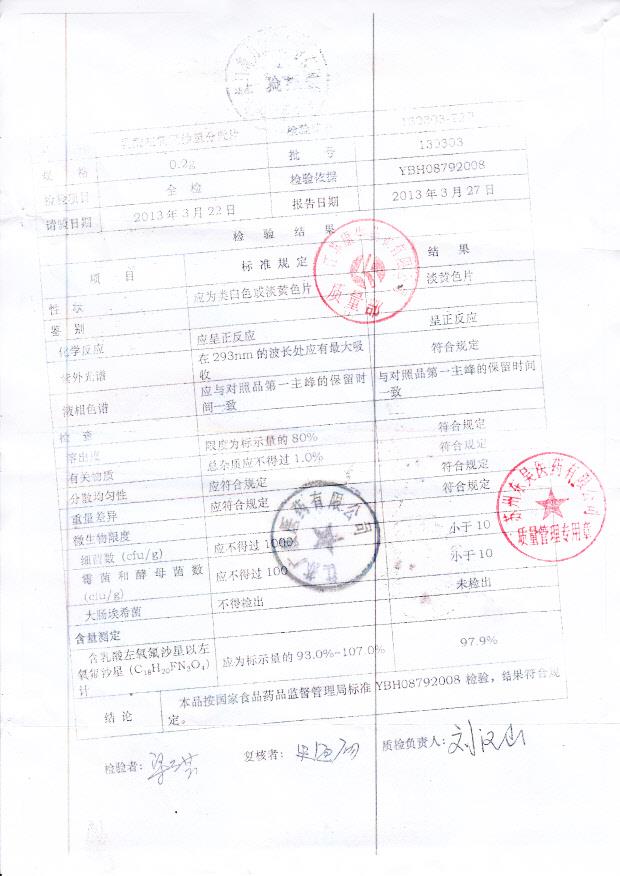 检验
乳酸左氧氟沙星分散片 检验
规 格 0.2g 批 号 130303
检验项目 全检 检验依据 YBH08792008
请验日期 2013年3月22日 报告日期 2013年3月27日
检 验 结 果
项 目 标准规定 结 果
性 状 应为类白色或淡黄色片 淡黄色片
鉴 别
化学反应 应呈正反应 呈正反应
紫外光谱 在293nm的波长处应有最大吸收 符合规定
液相色谱 应与对照品第一主峰的保留时间一致 与对照品第一主峰的保留时间一致
检 查
溶出度 限度为标示量的80% 符合规定
有关物质 总杂质应不得过1.0% 符合规定
分散均匀性 应符合规定 符合规定
重量差异 应符合规定 符合规定
微生物限度
细菌数(cfu/g) 应不得过1000 小于10
霉菌和酵母菌数(cfu/g) 应不得过100 小于10
大肠埃希菌 不得检出 未检出
含量测定
含乳酸左氧氟沙星以左氧氟沙星(C₁₈H₂₀FN₃O₄)计 应为标示量的93.0%~107.0% 97.9%
结论 本品按国家食品药品监督管理局标准YBH08792008检验，结果符合规定。
检验者： 复核者： 质检负责人：刘汉山
医药有限公司
质量管理专用章
医药有限公司